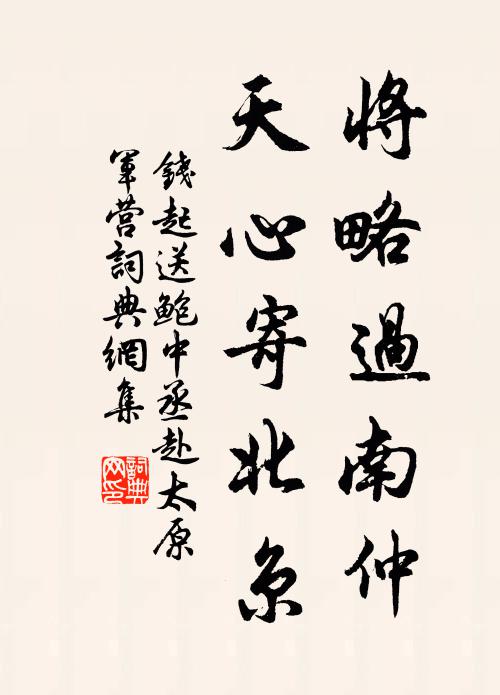 將略過南仲
天心寄北京
錢起送鮑中丞赴太原
軍营詞典網集
詞典
网印